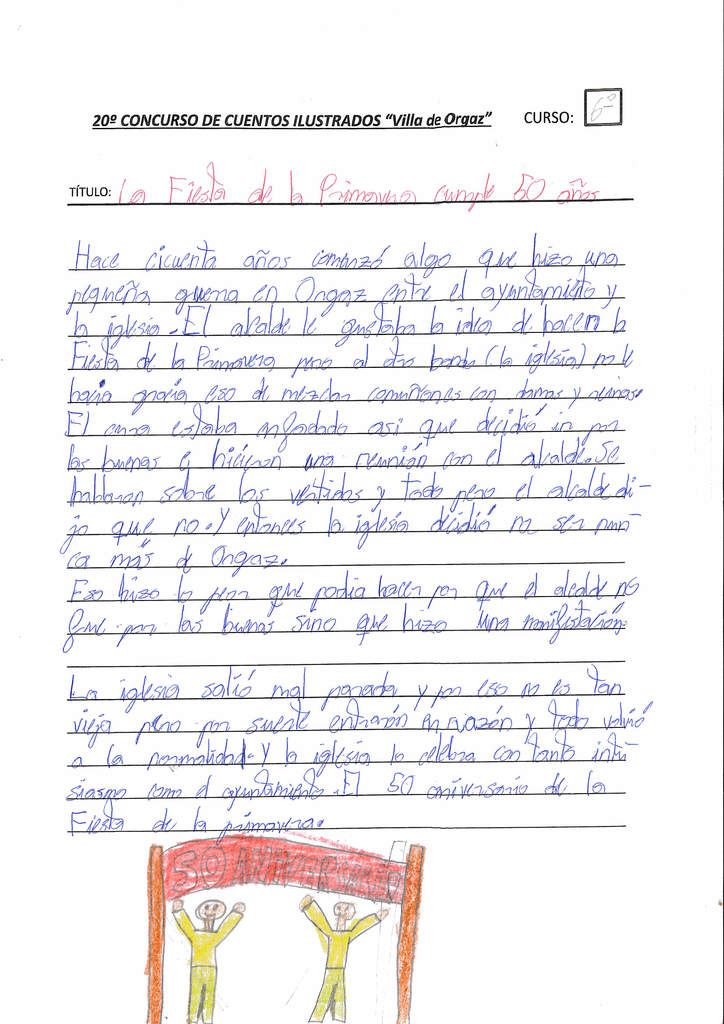 20º CONCURSO DE CUENTOS ILUSTRADOS “Villa de Orgaz” CURSO: 6º
TÍTULO: La Fiesta de la Primavera cumple 50 años
Hace cicuenta años comenzó algo que hizo una
pequeña guerra en Orgaz entre el ayuntamiento y
la iglesia. El alcalde le gustaba la idea de hacer la
Fiesta de la Primavera pero al otro bando (la iglesia) no le
hacía gracia eso de mezclar comuniones con damas y reinas.
El cura estaba enfadado asi que decidió ir por
las buenas e hiciéron una reunión con el alcalde. Se
hablaron sobre los vestidos y todo pero el alcalde di-
jo que no. Y entonces la iglesia decidió no ser nun-
ca más de Orgaz.
Eso hizo lo peor que podia hacer por que el alcalde no
fue por las buenas sino que hizo una manifistación.
La iglesia salió mal parada y por eso no es tan
vieja pero por suerte entrarón en razón y todo volvió
a la normalidad. Y la iglesia lo celebra con tanto intu-
siasmo como el ayuntamiento. El 50 aniversario de la
Fiesta de la primavera.
50 ANIVERSARIO